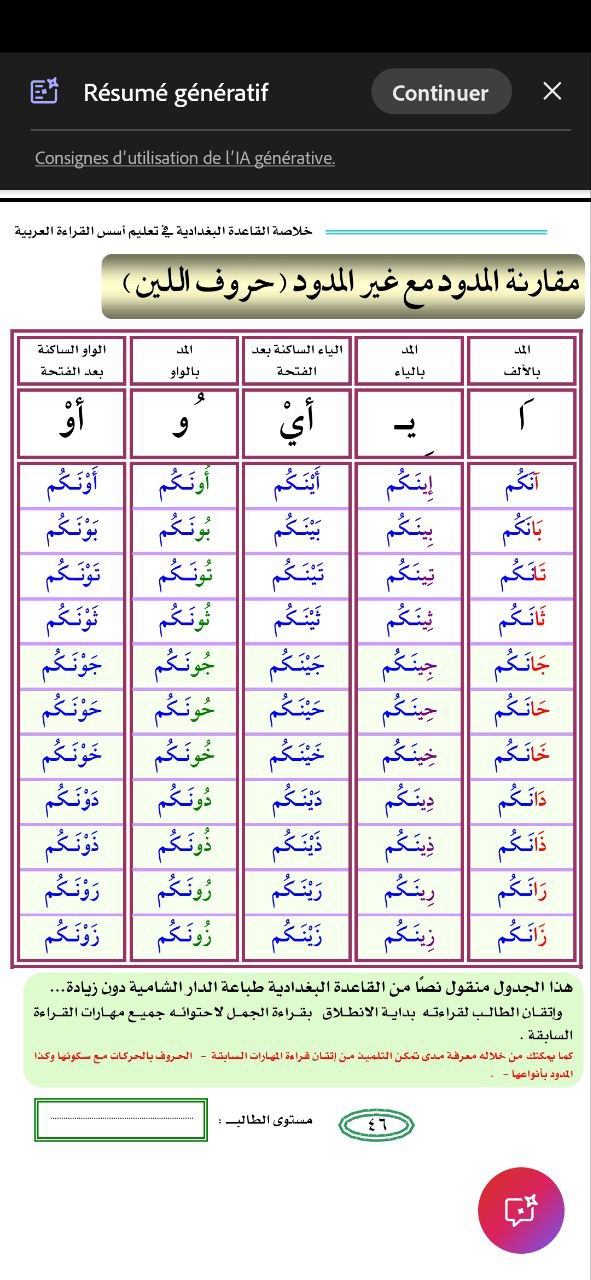 Résumé génératif
Continuer
Consignes d'utilisation de l'IA générative.
خلاصة القاعدة البغدادية في تعليم أسس القراءة العربية
مقارنة المدود مع غير المدود (حروف اللين)
المد بالألف المد بالياء الياء الساكنة بعد الفتحة المد بالواو الواو الساكنة بعد الفتحة
ـَا ـِيـ أيْ ـُو أوْ
آنَكُم إِينَكُم أَيْنَكُم أُونَكُم أَوْنَكُم
بَانَكُم بِينَكُم بَيْنَكُم بُونَكُم بَوْنَكُم
تَانَكُم تِينَكُم تَيْنَكُم تُونَكُم تَوْنَكُم
ثَانَكُم ثِينَكُم ثَيْنَكُم ثُونَكُم ثَوْنَكُم
جَانَكُم جِينَكُم جَيْنَكُم جُونَكُم جَوْنَكُم
حَانَكُم حِينَكُم حَيْنَكُم حُونَكُم حَوْنَكُم
خَانَكُم خِينَكُم خَيْنَكُم خُونَكُم خَوْنَكُم
دَانَكُم دِينَكُم دَيْنَكُم دُونَكُم دَوْنَكُم
ذَانَكُم ذِينَكُم ذَيْنَكُم ذُونَكُم ذَوْنَكُم
رَانَكُم رِينَكُم رَيْنَكُم رُونَكُم رَوْنَكُم
زَانَكُم زِينَكُم زَيْنَكُم زُونَكُم زَوْنَكُم
هذا الجدول منقول نصًا من القاعدة البغدادية طباعة الدار الشامية دون زيادة...
وإتقان الطالب لقراءته بداية الانطلاق بقراءة الجمل لاحتوائه جميع مهارات القراءة
السابقة .
كما يمكنك من خلاله معرفة مدى تمكن التلميذ من إتقان قراءة المهارات السابقة – الحروف بالحركات مع سكونها وكذا
المدود بأنواعها – .
٤٦
مستوى الطالب :